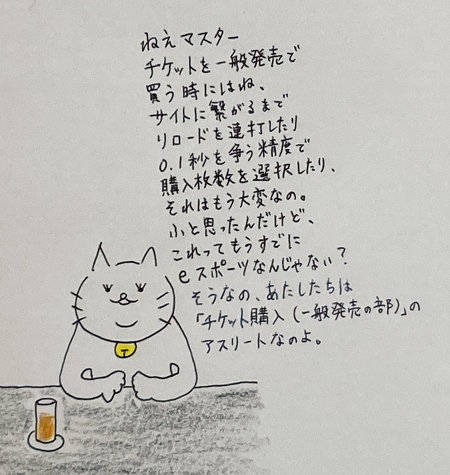 ねえマスター
チケットを一般発売で
買う時にはね、
サイトに繋がるまで
リロードを連打したり
0.1秒を争う精度で
購入枚数を選択したり、
それはもう大変なの。
ふと思ったんだけど、
これってもうすでに
eスポーツなんじゃない?
そうなの、あたしたちは
「チケット購入(一般発売の部)」の
アスリートなのよ。
T